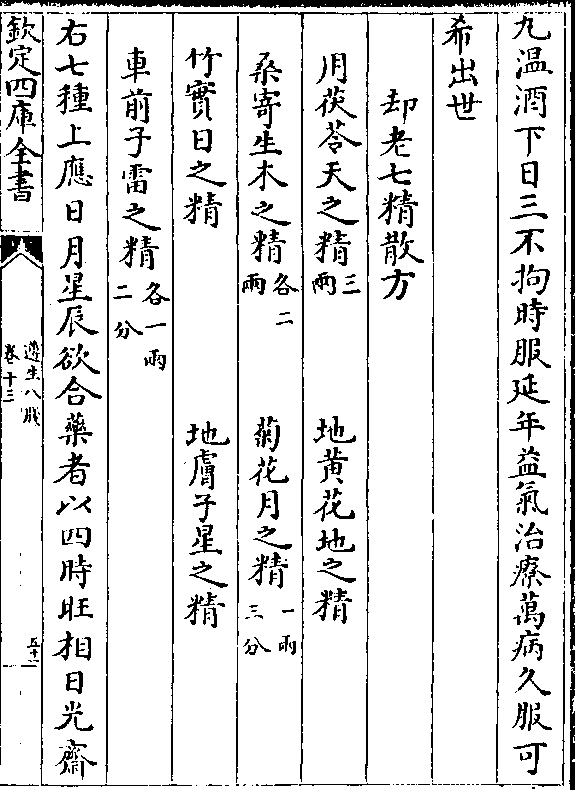 九温酒下日三不拘時服延年益氣治療萬病久服可
希出世
却老七精散方
用茯苓天之精三兩 地黄花地之精
桑寄生木之精各二兩 菊花月之精一兩三分
竹實日之精 地膚子星之精
車前子雷之精各一兩二分
右七種上應日月星辰欲合藥者以四時旺相日光齋
欽定四庫全書
遵生八牋
卷十三
五十一